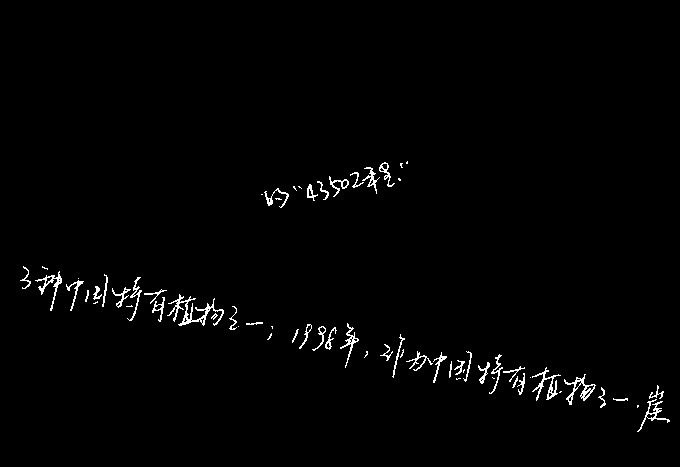 的“43502工程”
3种中国特有植物之一；1998年，作为中国特有植物之一.崖